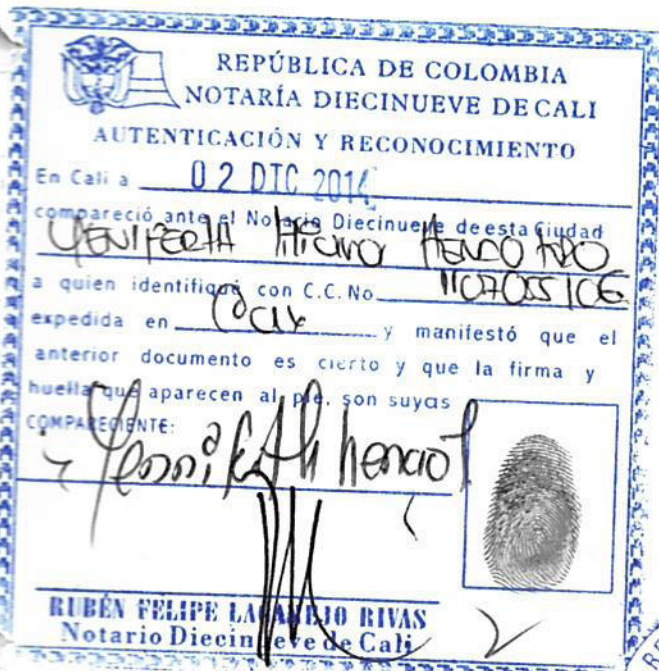 REPÚBLICA DE COLOMBIA
NOTARÍA DIECINUEVE DE CALI
AUTENTICACIÓN Y RECONOCIMIENTO
En Cali a 02 DIC 2014
compareció ante el Notario Diecinueve de esta Ciudad
a quien identifiqué con C.C. No. 1107055106
expedida en Cali y manifestó que el
anterior documento es cierto y que la firma y
huella que aparecen al pie, son suyas
COMPARECIENTE:
RUBÉN FELIPE RIVAS
Notario Diecinueve de Cali